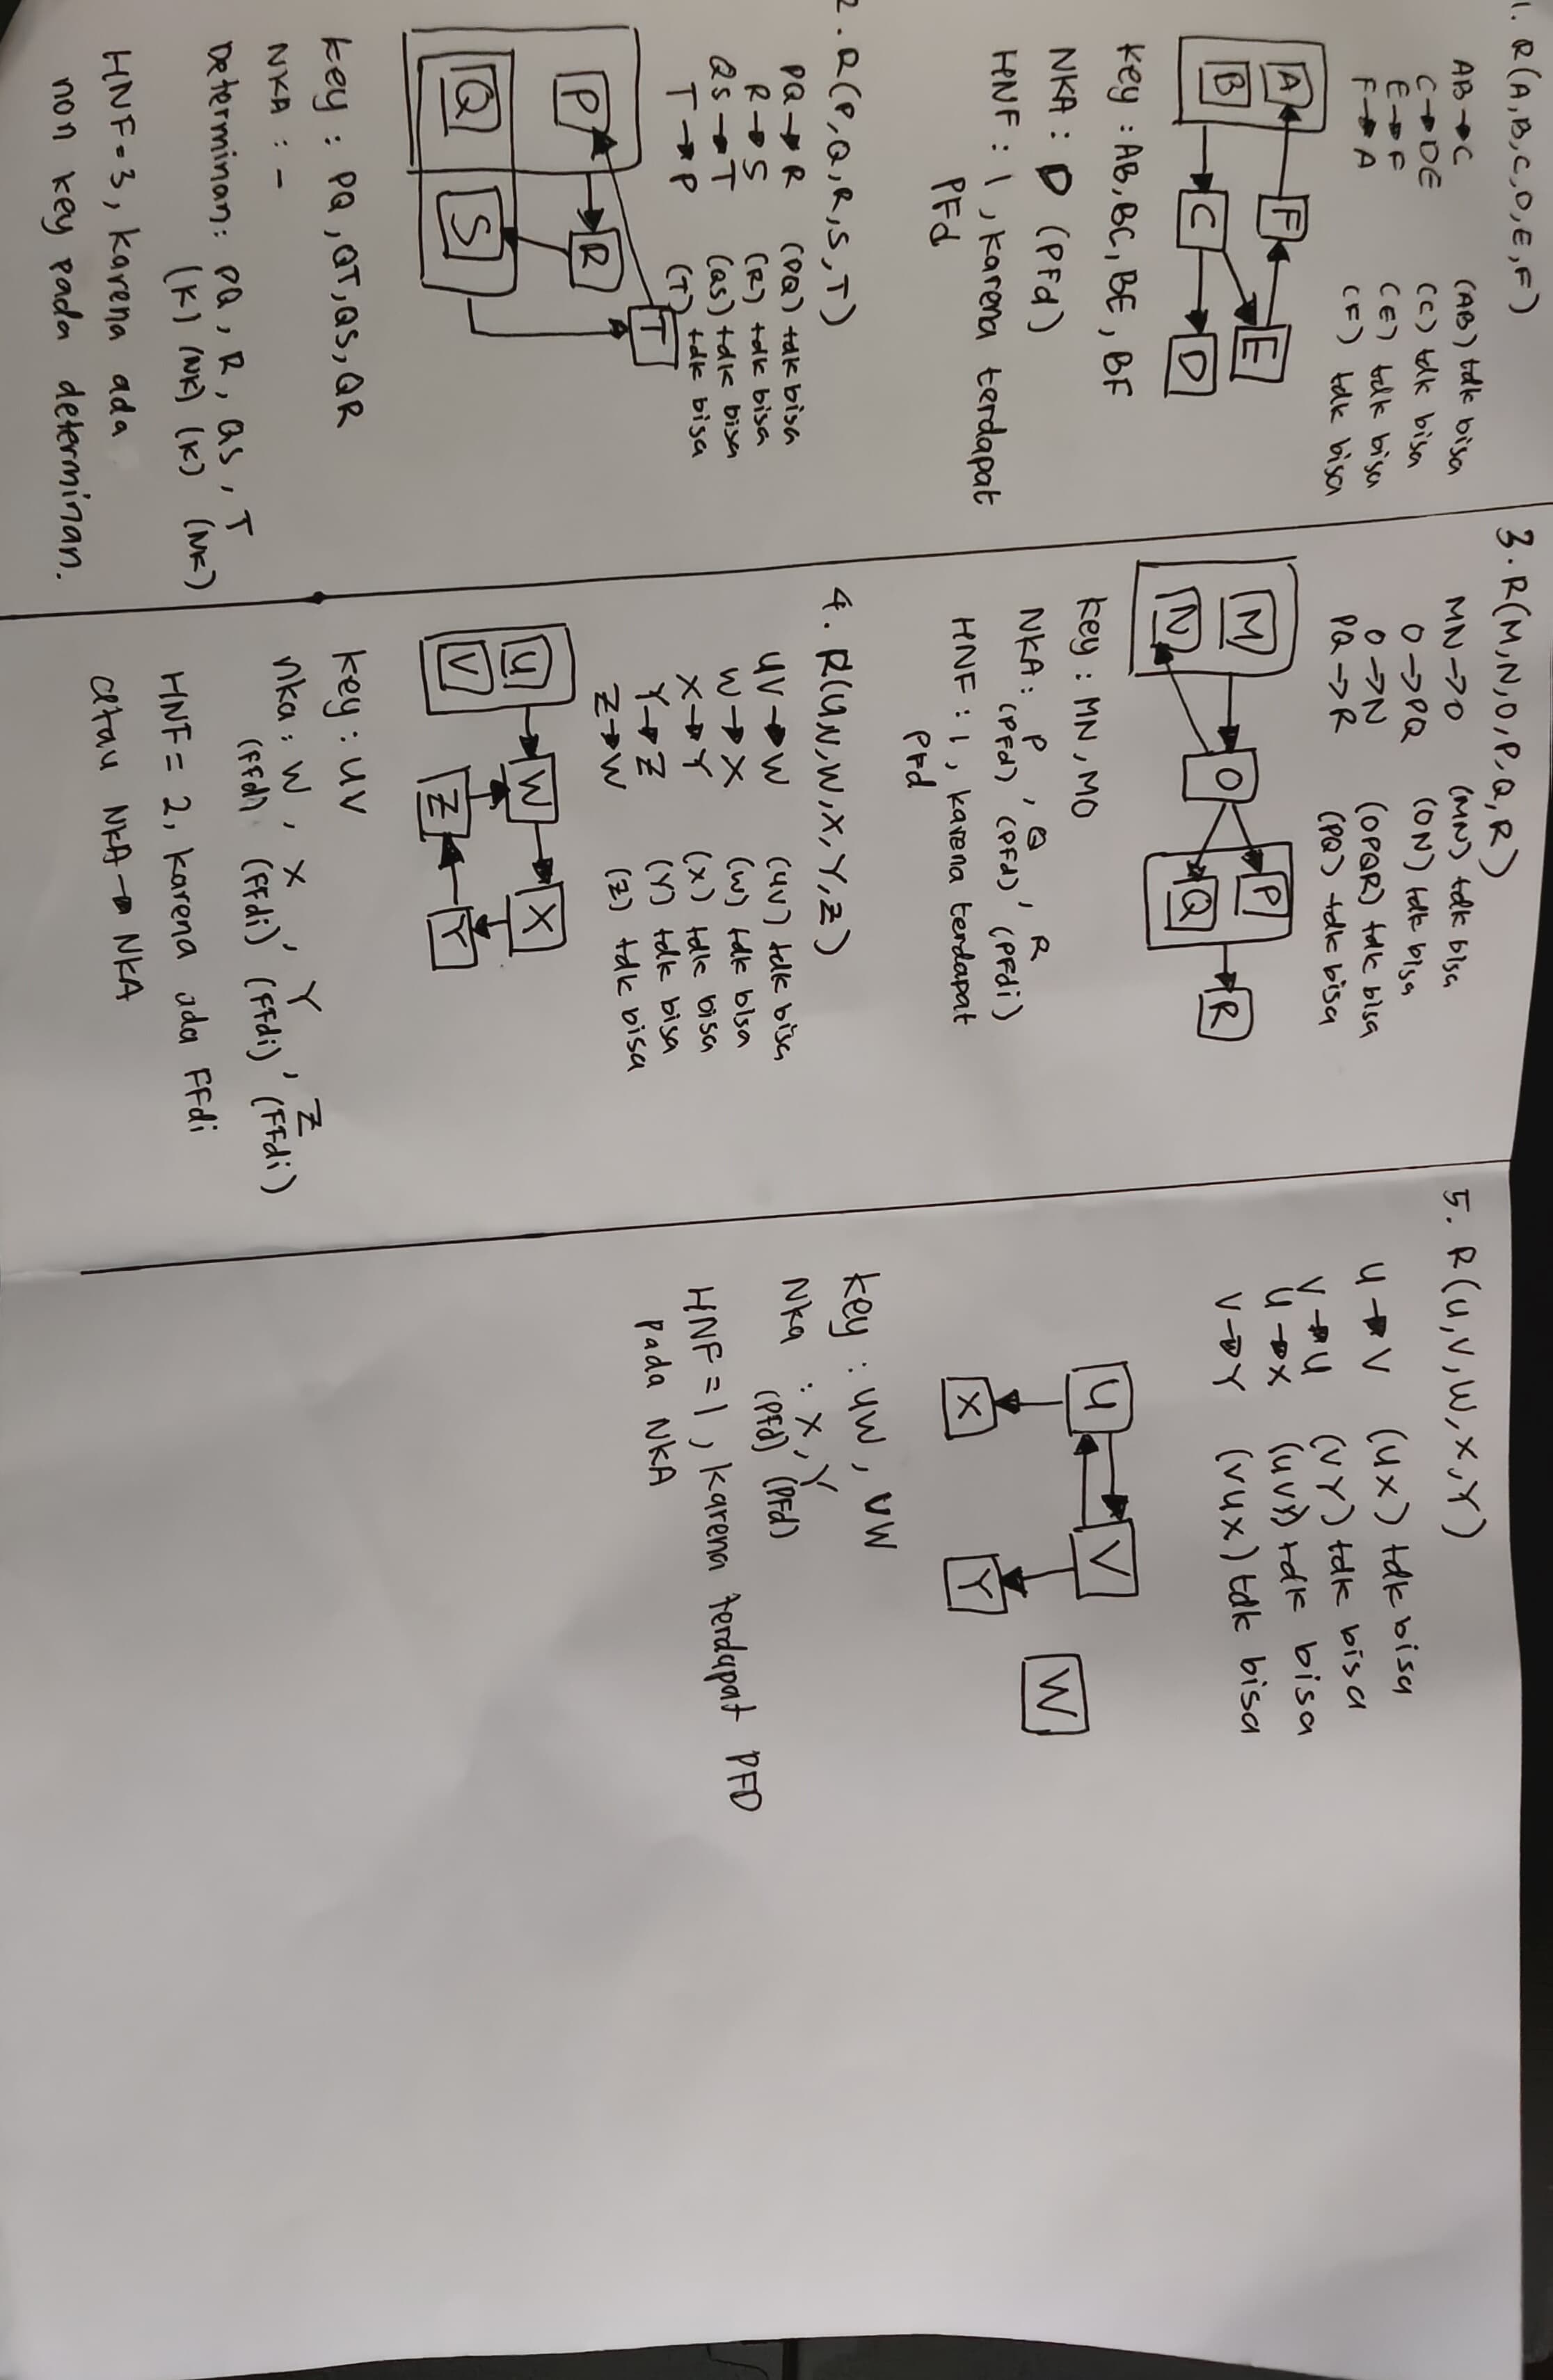 1. R(A,B,C,D,E,F)
AB→C (AB) tdk bisa
C→DE (C) tdk bisa
E→F (E) tdk bisa
F→A (F) tdk bisa
A F E
B C D
Key : AB, BC, BE, BF
NKA : D (PFd)
HNF : 1, karena terdapat
PFd
2. R(P,Q,R,S,T)
PQ→R (PQ) tdk bisa
R→S (R) tdk bisa
QS→T (QS) tdk bisa
T→P (T) tdk bisa
P R T
Q S
Key : PQ, QT, QS, QR
NKA : -
Determinan: PQ, R, QS, T
(K) (NK) (K) (NK)
HNF=3, karena ada
non key pada determinan.
3. R(M,N,O,P,Q,R)
MN→O (MN) tdk bisa
O→PQ (ON) tdk bisa
O→N (OPQR) tdk bisa
PQ→R (PQ) tdk bisa
M O P R
N Q
Key : MN, MO
NKA : P, Q, R
(PFd) (PFd) (PFdi)
HNF : 1, karena terdapat
PFd
4. R(U,V,W,X,Y,Z)
UV→W (UV) tdk bisa
W→X (W) tdk bisa
X→Y (X) tdk bisa
Y→Z (Y) tdk bisa
Z→W (Z) tdk bisa
U W X
V Z Y
Key : UV
nka : W, X, Y, Z
(FFd) (FFdi) (FFdi) (FFdi)
HNF = 2, karena ada FFdi
atau NKA→NKA
5. R(U,V,W,X,Y)
U→V (UX) tdk bisa
V→U (VY) tdk bisa
U→X (UVY) tdk bisa
V→Y (VUX) tdk bisa
U V W
X Y
Key : UW, VW
Nka : X, Y
(PFd) (PFd)
HNF = 1, karena terdapat PFD
pada NKA